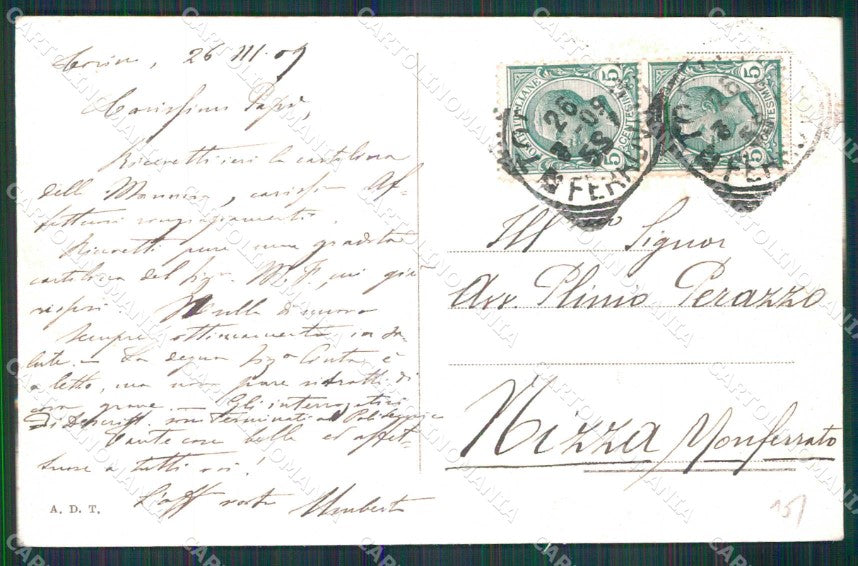 Torino, 26 III. 09
Carissimo Papà,
Ricevetti ieri la cartolina
della Mammina, carissima Af-
fettuosi ringraziamenti.
Ricevetti pure una gradita
cartolina del Sigr. M. F, cui già
risposi. Nulla di nuovo
Sempre ottimamente in sa-
lute. - La Sigra Conta è
a letto, ma non pare si tratti di
cosa grave. - Gli interrogatori
di Descritt. non terminati al Politecnico
Tante cose belle ed affet-
tuose a tutti voi!
L'aff vostro Umberto
A. D. T.
POSTE ITALIANE
CENTESIMI
5
5
POSTE ITALIANE
CENTESIMI
5
5
26
3 - 09
FERROVIA
FERROVIA
Ill mo Signor
Avv. Plinio Perazzo
Nizza Monferrato
15/
CARTOLINOMANIA